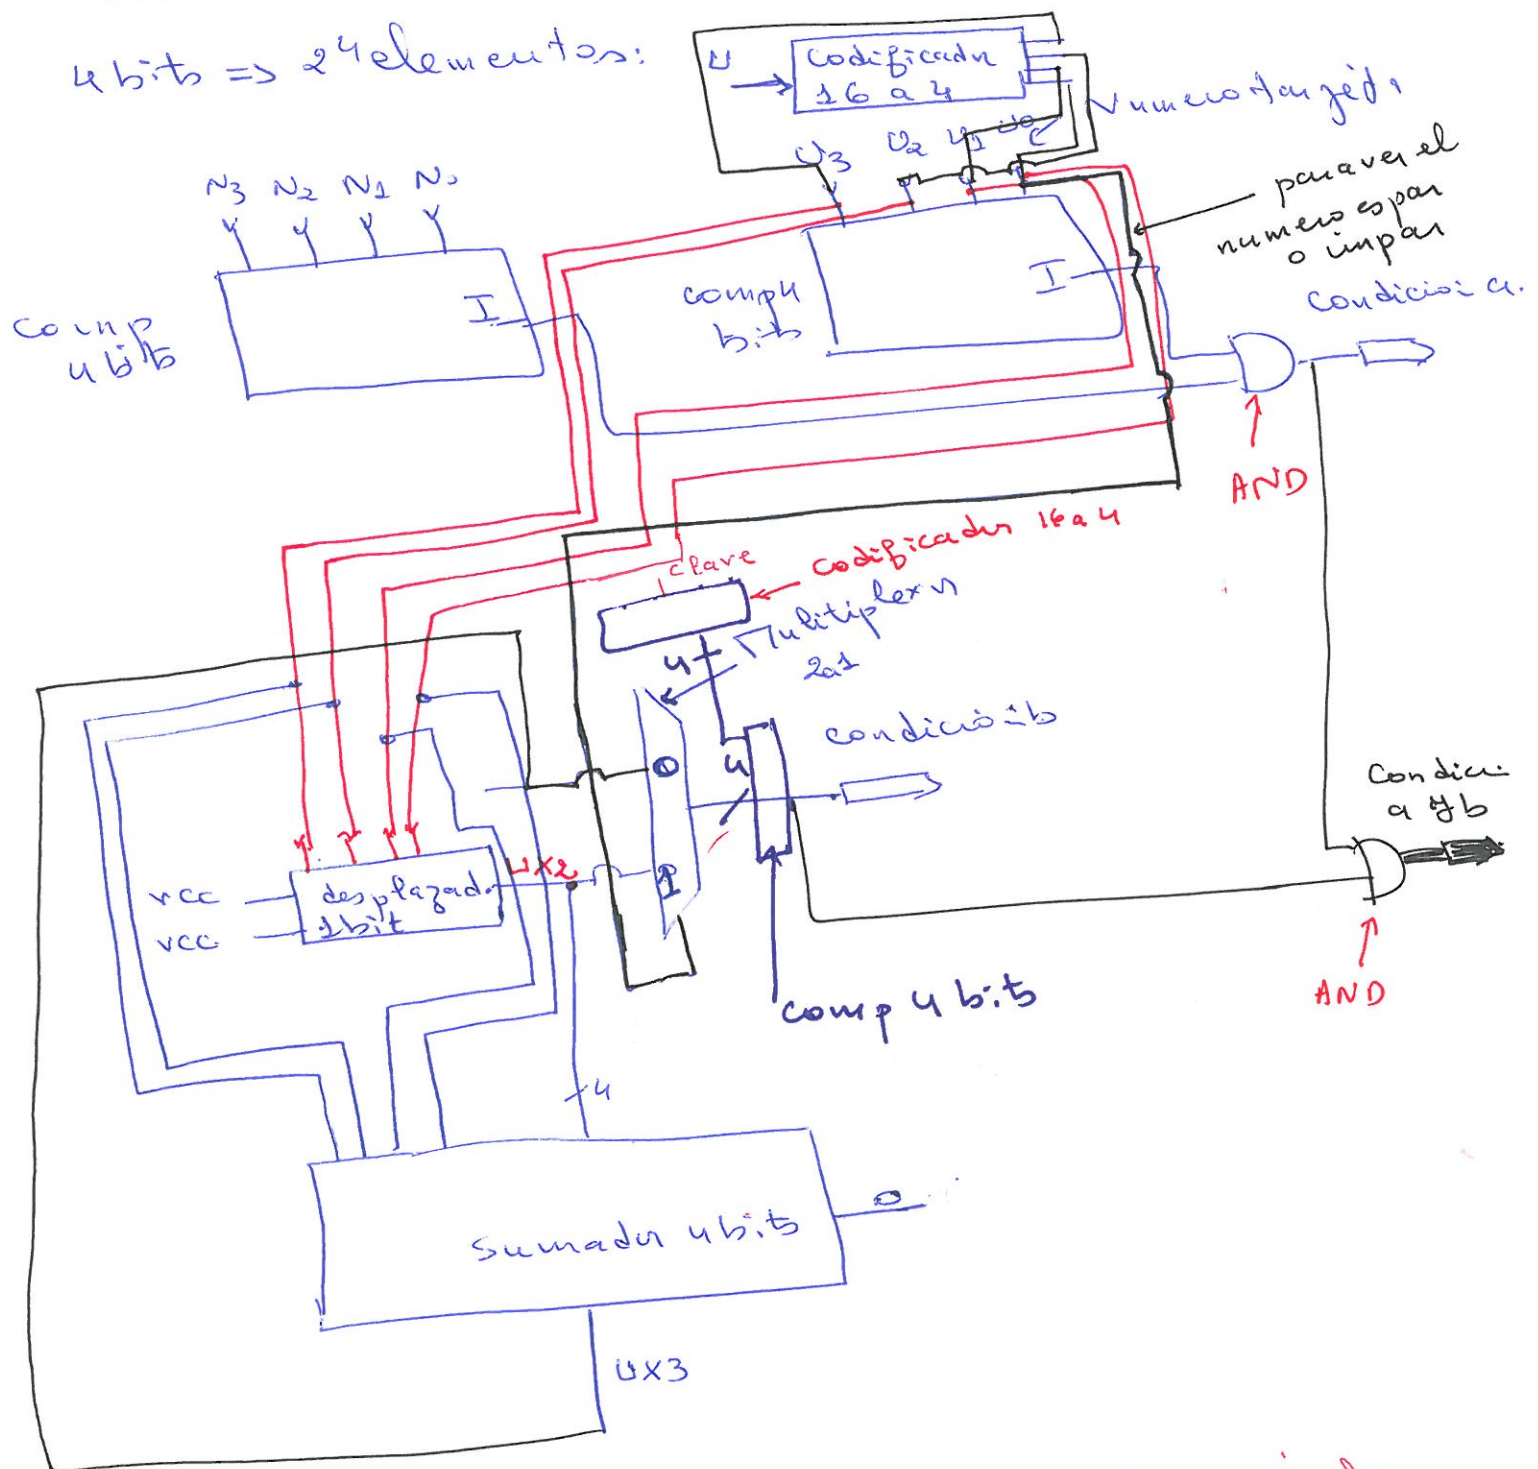 4 bits => 2⁴ elementos:
U
Codificador
16 a 4
Numero tarjeta
U3 U2 U1 U0
N3 N2 N1 N0
para ver el
numero es par
o impar
I
I
comp
4 bits
comp 4
bits
condicion a.
AND
codificador 16 a 4
clave
Multiplexor
2a1
4
0
4
condición b
Condici.
a y b
vcc
vcc
desplazad.
1bit
UX2
1
comp 4 bits
AND
4
0
Sumador 4 bits
UX3